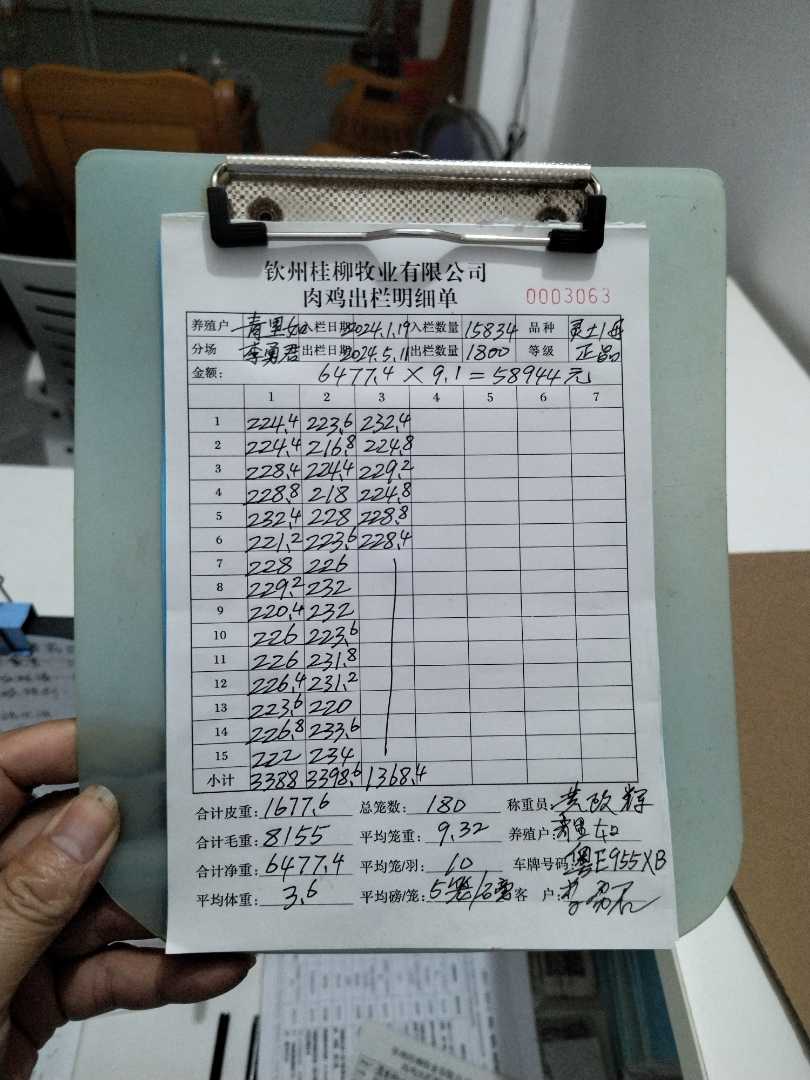 钦州桂柳牧业有限公司
肉鸡出栏明细单 0003063
养殖户 入栏日期 2024.1.19 入栏数量 15834 品种
分场 李勇君 出栏日期 2024.5.11 出栏数量 1800 等级 正品
金额: 6477.4 × 9.1 = 58944元
1 2 3 4 5 6 7
1 224.4 223.6 232.4
2 224.4 216.8 224.8
3 228.4 224.4 229.2
4 228.8 218 224.8
5 232.4 228 228.8
6 221.2 223.6 228.4
7 228 226
8 229.2 232
9 220.4 232
10 226 223.6
11 226 231.8
12 226.4 231.2
13 223.6 220
14 226.8 233.6
15 222 234
小计 3388 3398.6 1368.4
合计皮重: 1677.6 总笼数: 180 称重员: 黄政辉
合计毛重: 8155 平均笼重: 9.32 养殖户:
合计净重: 6477.4 平均笼/羽: 10 车牌号码: 粤E955XB
平均体重: 3.6 平均磅/笼: 客户: